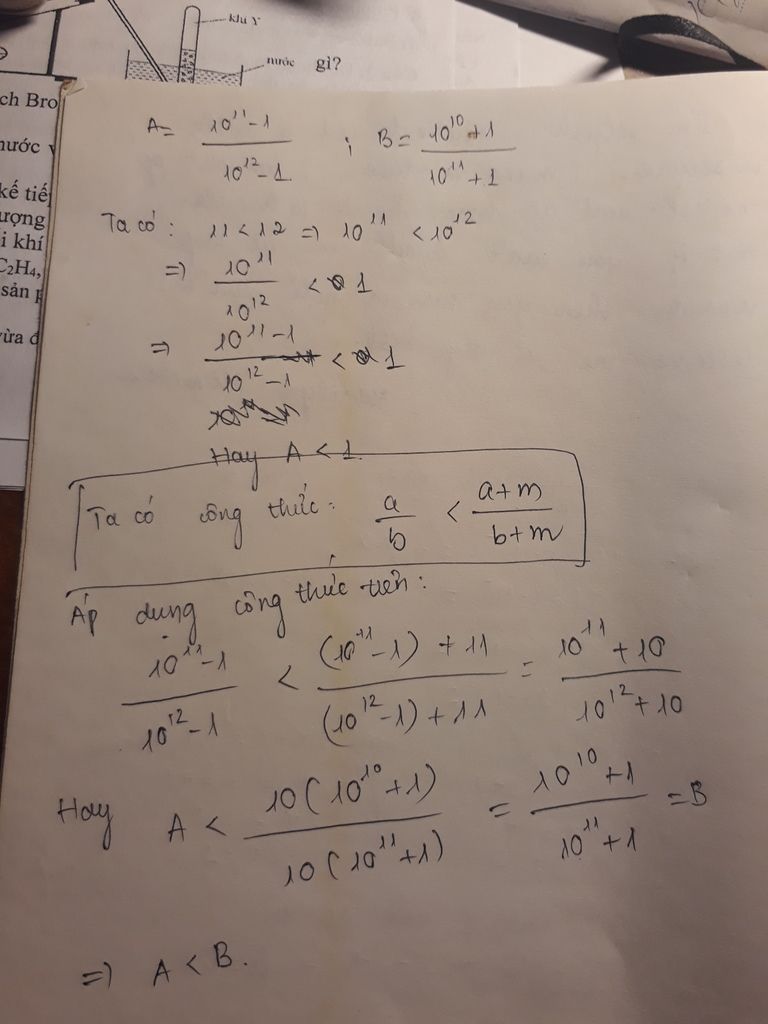 khí Y
nước gì?
ch Bro
nước v
kế tiế
ượng
i khí
C₂H₄,
sản p
vừa đ
A = \frac{10^{11}-1}{10^{12}-1} ; B = \frac{10^{10}+1}{10^{11}+1}
Ta có : 11 < 12 => 10^{11} < 10^{12}
=> \frac{10^{11}}{10^{12}} < 1
=> \frac{10^{11}-1}{10^{12}-1} < 1
Hay A < 1.
Ta có công thức: \frac{a}{b} < \frac{a+m}{b+m}
Áp dụng công thức trên:
\frac{10^{11}-1}{10^{12}-1} < \frac{(10^{11}-1)+11}{(10^{12}-1)+11} = \frac{10^{11}+10}{10^{12}+10}
Hay A < \frac{10(10^{10}+1)}{10(10^{11}+1)} = \frac{10^{10}+1}{10^{11}+1} = B
=> A < B.